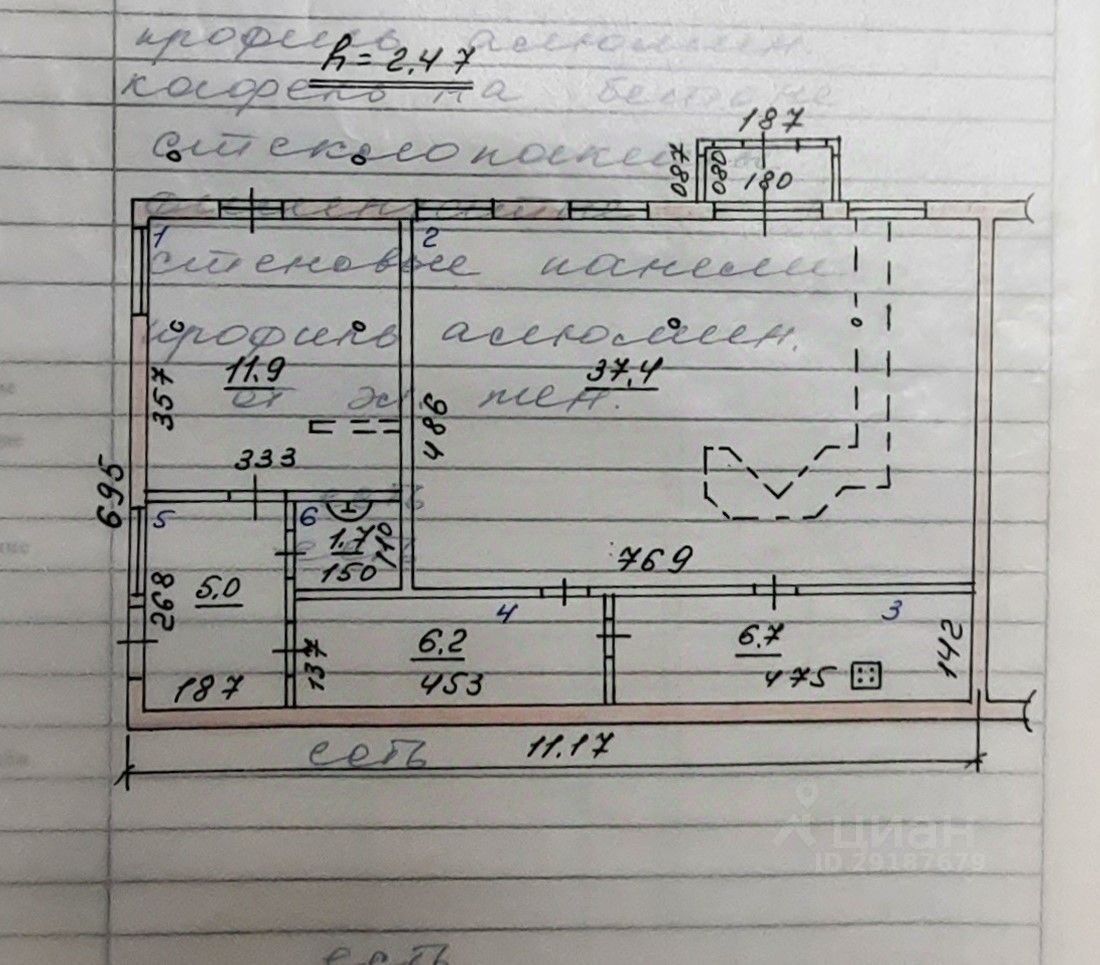 профиль алюмин
h = 2.47
кафель на бетоне
187
стеклопакет
087
080
180
1
2
стеновые панели
профиль алюмин.
11.9
37.4
357
486
333
695
есть
5
6
1.7
110
150
769
268
5.0
4
3
6.2
6.7
137
142
187
453
475
есть
11.17
циан
ID 29187679
есть